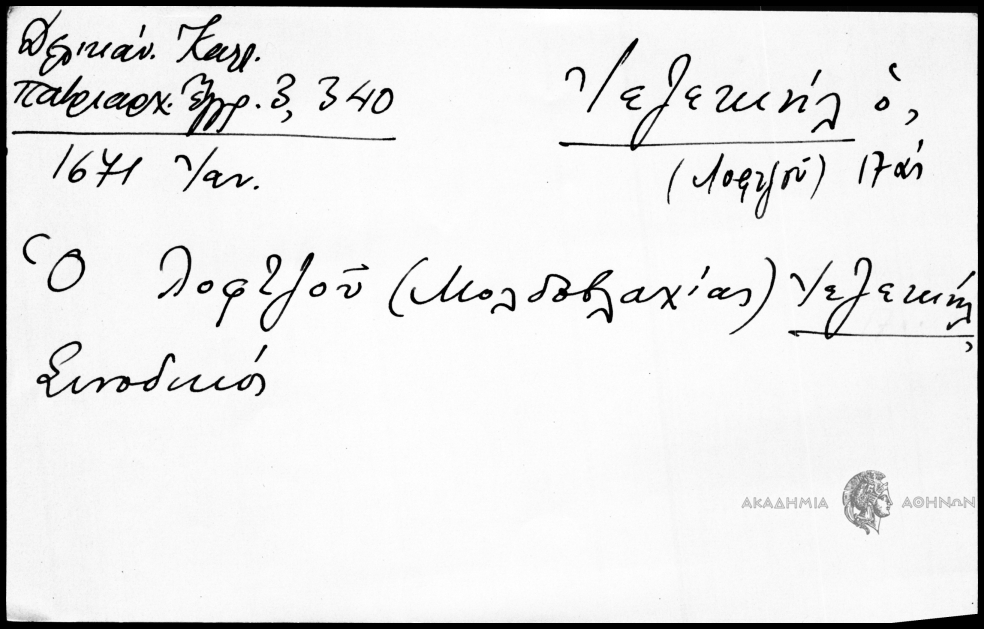 Δελικάν. Καλλ.
πατριαρχ. Ἔγγρ. 3, 340
1671 Ἰαν.
Ἰεζεκιήλ ὁ,
(Λοφτζοῦ) 17 αἰ
Ὁ Λοφτζοῦ (Μολδοβλαχίας) Ἰεζεκιήλ,
Συνοδικός
ΑΚΑΔΗΜΙΑ ΑΘΗΝΩΝ